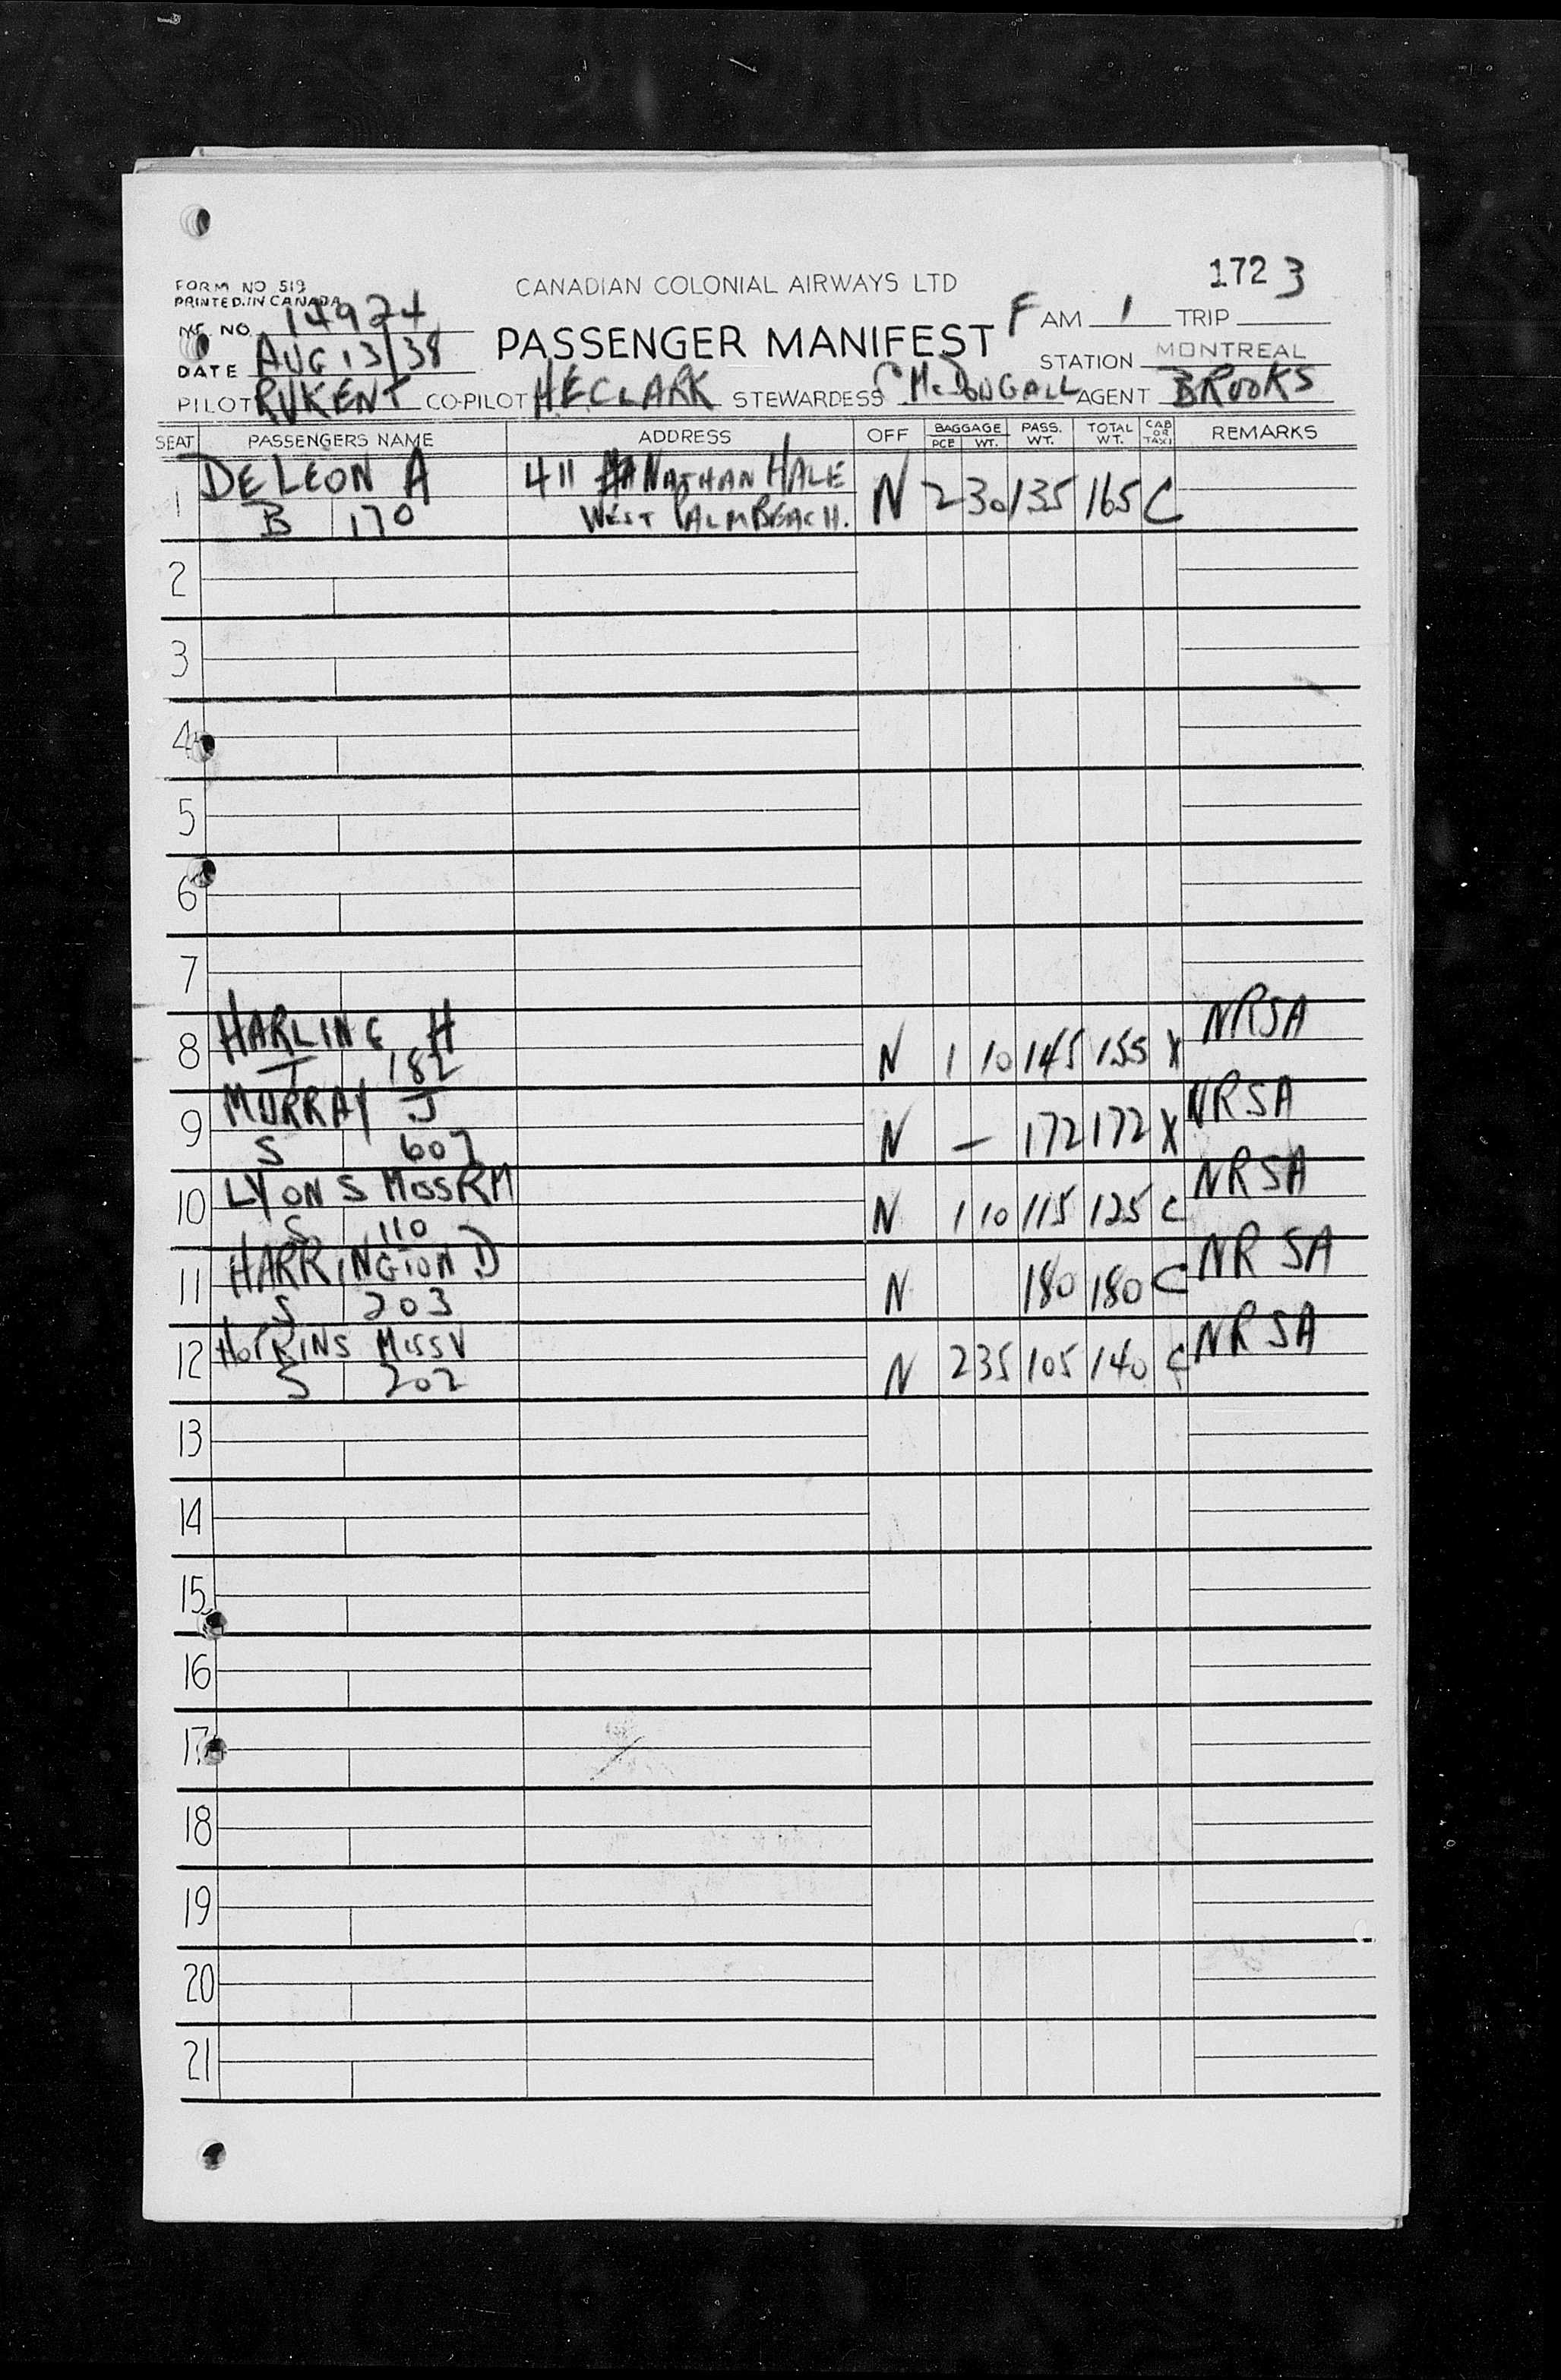 1723
FORM NO 519
PRINTED IN CANADA
CANADIAN COLONIAL AIRWAYS LTD
NC. NO. 14924
PASSENGER MANIFEST
F AM 1 TRIP
DATE AUG 13/38
STATION MONTREAL
PILOT RVKENT CO-PILOT HECLARK STEWARDESS C McDOUGALL AGENT BROOKS
SEAT PASSENGERS NAME ADDRESS OFF BAGGAGE PCE WT. PASS. WT. TOTAL WT. CAB OR TAXI REMARKS
1 DELEON A 411 NATHAN HALE N 2 30 135 165 C
B 170 WEST PALM BEACH.
2
3
4
5
6
7
8 HARLING H N 1 10 145 155 X NRSA
T 182
9 MURRAY J N — 172 172 X NRSA
S 607
10 LYONS MISS RM N 1 10 115 125 C NRSA
S 110
11 HARRINGTON D N 180 180 C NRSA
S 203
12 HOPKINS MISS V N 2 35 105 140 C NRSA
S 202
13
14
15
16
17
18
19
20
21